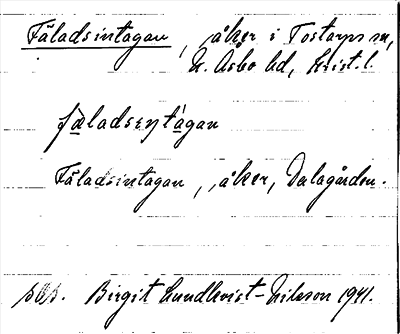 Fäladsintagan, åker i Tostarps sn,
N. Åsbo hd, Krist. l.
fäladsıntágan
Fäladsintagan, åker, Dalagården.
Birgit Lundkvist-Nilsson 1941.